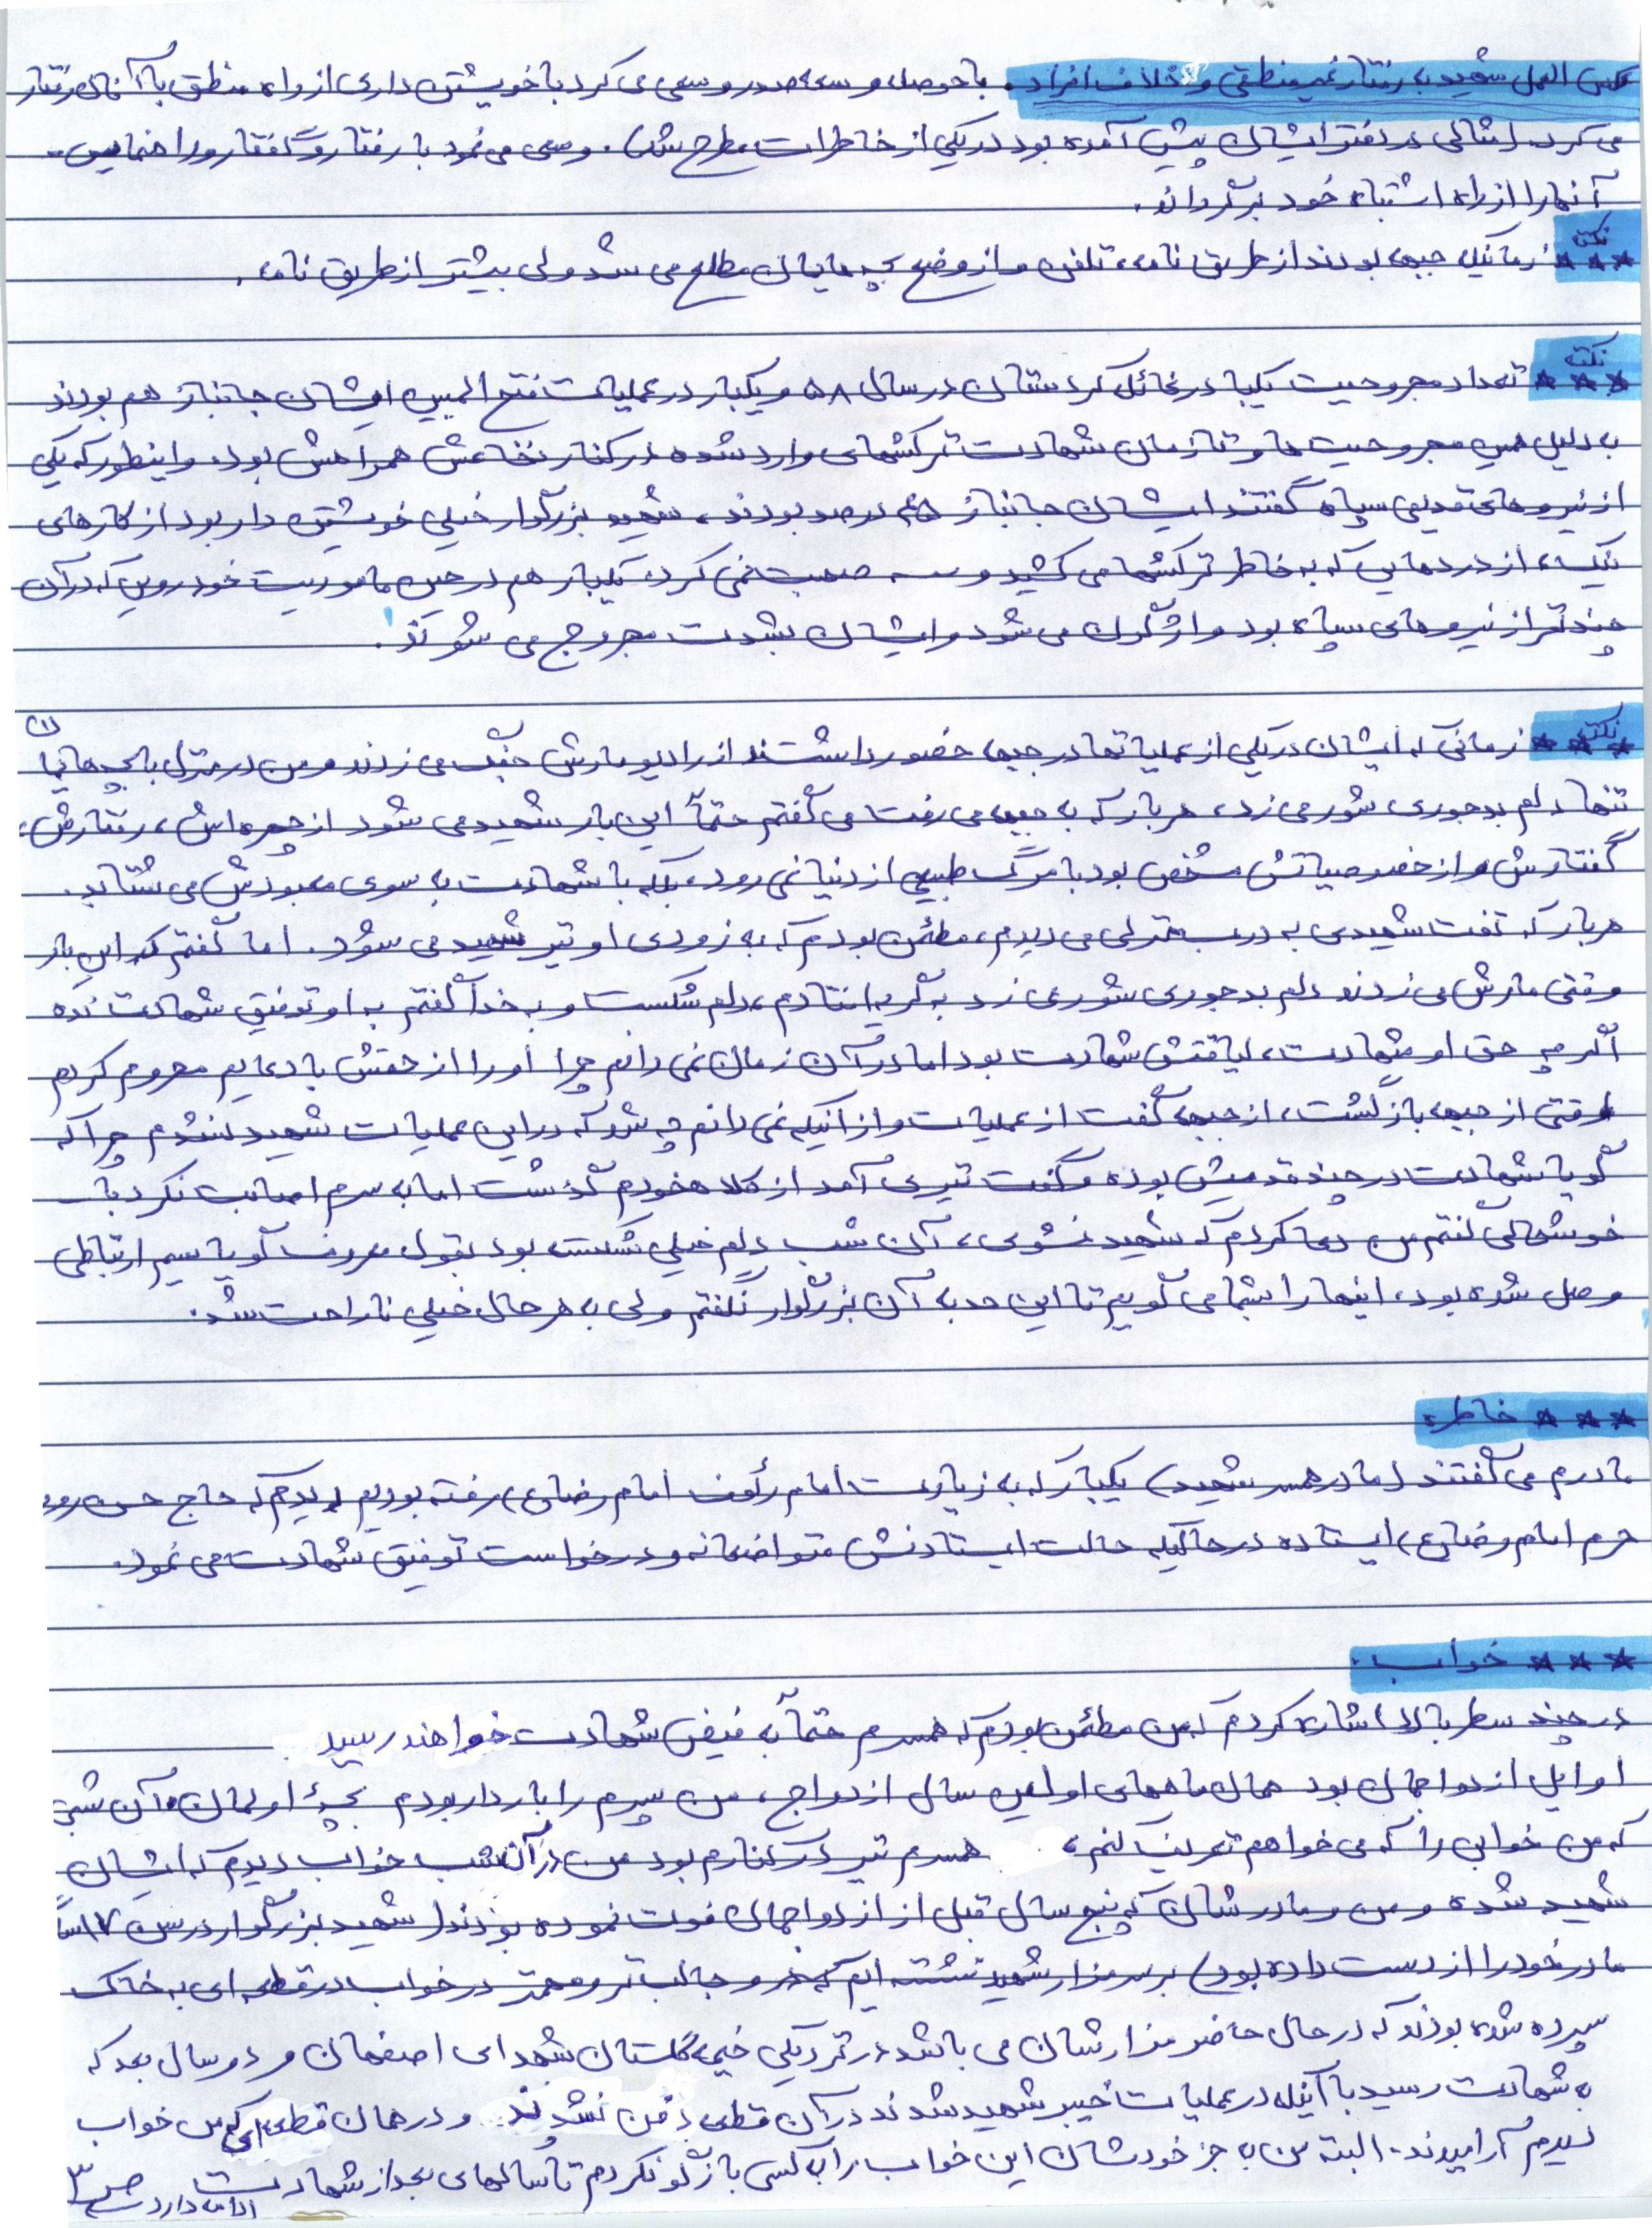 عکس العمل شهید به رفتار غیر منطقی و خلاف افراد. با حوصله و سعه صدر و سعی می کرد با خویشتن داری از راه منطق با آنها رفتار
می کرد. (مثالی در دفتر ایشان پیش آمده بود در یکی از خاطرات مطرح شد). و سعی می نمود با رفتار و گفتار و راهنمایی
آنها را از راه اشتباه خود برگرداند.
نکته
*** زمانیکه جبهه بودند از طریق نامه، تلفن و از وضع بچه هایمان مطلع می شد ولی بیشتر از طریق نامه.
نکته
*** تعداد مجروحیت یکبار در غائله کردستان در سال ۵۸ و یکبار در عملیات فتح المبین ایشان جانباز هم بودند
به دلیل همین مجروحیت ها و تا زمان شهادت ترکشهای وارد شده در کنار نخاعش همراهش بود. و اینطور که یکی
از نیروهای قدیمی سپاه گفتند ایشان جانباز ۴۵ درصد بودند، شهید بزرگوار خیلی خویشتن دار بود از کارهای
نیک، از دردهایی که به خاطر ترکشها می کشید و ... صحبت نمی کرد، یکبار هم در حین ماموریت خودرویی که در آن
چند نفر از نیروهای سپاه بود واژگون می شود و ایشان بشدت مجروح می شوند.
نکته
*** زمانی که ایشان در یکی از عملیاتها در جبهه حضور داشتند از رادیو مارش جنگ می زدند و من در منزل با بچه هایمان
تنها دلم بدجوری شور می زد، هر بار که به جبهه می رفت می گفتم حتماً این بار شهید می شود از چهره اش، رفتارش،
گفتارش و از خصوصیاتش مشخص بود با مرگ طبیعی از دنیا نمی رود، بلکه با شهادت به سوی معبودش می شتابد.
هر بار که تفت شهیدی به درب منزلی می دیدم، مطمئن بودم که به زودی او نیز شهید می شود. اما گفتم که این بار
وقتی مارش می زدند دلم بدجوری شور می زد به گریه افتادم، دلم شکست و به خدا گفتم به او توفیق شهادت نده
اگر چه حق او شهادت، لیاقتش شهادت بود اما در آن زمان نمی دانم چرا او را از حقش با دعایم محروم کردم
وقتی از جبهه بازگشت، از جبهه گفت از عملیات و از اینکه نمی دانم چه شد که در این عملیات شهید نشدم چرا که
گویا شهادت در چند قدمیش بوده و گفت تیری آمد از کلاهخودم گذشت اما به سرم اصابت نکرد با
خوشحالی گفتم من دعا کردم که شهید نشوی، آن شب دلم خیلی شکسته بود بقول معروف گویا سیم ارتباطی
وصل شده بود، اینها را بشما می گویم تا این حد به آن بزرگوار نگفتم ولی به هر حال خیلی ناراحت شد.
*** خاطره
مادرم می گفتند (مادر همسر شهید) یکبار که به زیارت امام رئوف امام رضا(ع) رفته بودیم دیدم که حاج حسن
حرم امام رضا(ع) ایستاده در حالیکه حالت ایستادنش متواضعانه و درخواست توفیق شهادت می نمود.
*** خواب.
در چند سطر بالا اشاره کردم که من مطمئن بودم که همسرم حتماً به فیض شهادت خواهند رسید
اوایل ازدواجمان بود همان ماههای اولین سال ازدواج، من پسرم را باردار بودم بچۀ اولمان و آن شبی
که من خوابی را که می خواهم تعریف کنم، همسرم نیز در کنارم بود من در آن شب خواب دیدم که ایشان
شهید شده و من و مادرشان که پنج سال قبل از ازدواجمان فوت نموده بودند (شهید بزرگوار در سن ۱۷ سالگی
مادر خود را از دست داده بود) بر سر مزار شهید نشسته ایم و جالبتر و مهمتر در خواب در قطعه ای به خاک
سپرده شده بودند که در حال حاضر مزارشان می باشد در نزدیکی خیمه گلستان شهدای اصفهان و دو سال بعد که
به شهادت رسید با آنکه در عملیات خیبر شهید شدند در آن قطعه دفن نشدند و در همان قطعه ای که من خواب
دیدم آرامیدند. البته من به جز خودشان این خواب را به کسی بازگو نکردم تا سالهای بعد از شهادت
ادامه دارد ص ۳